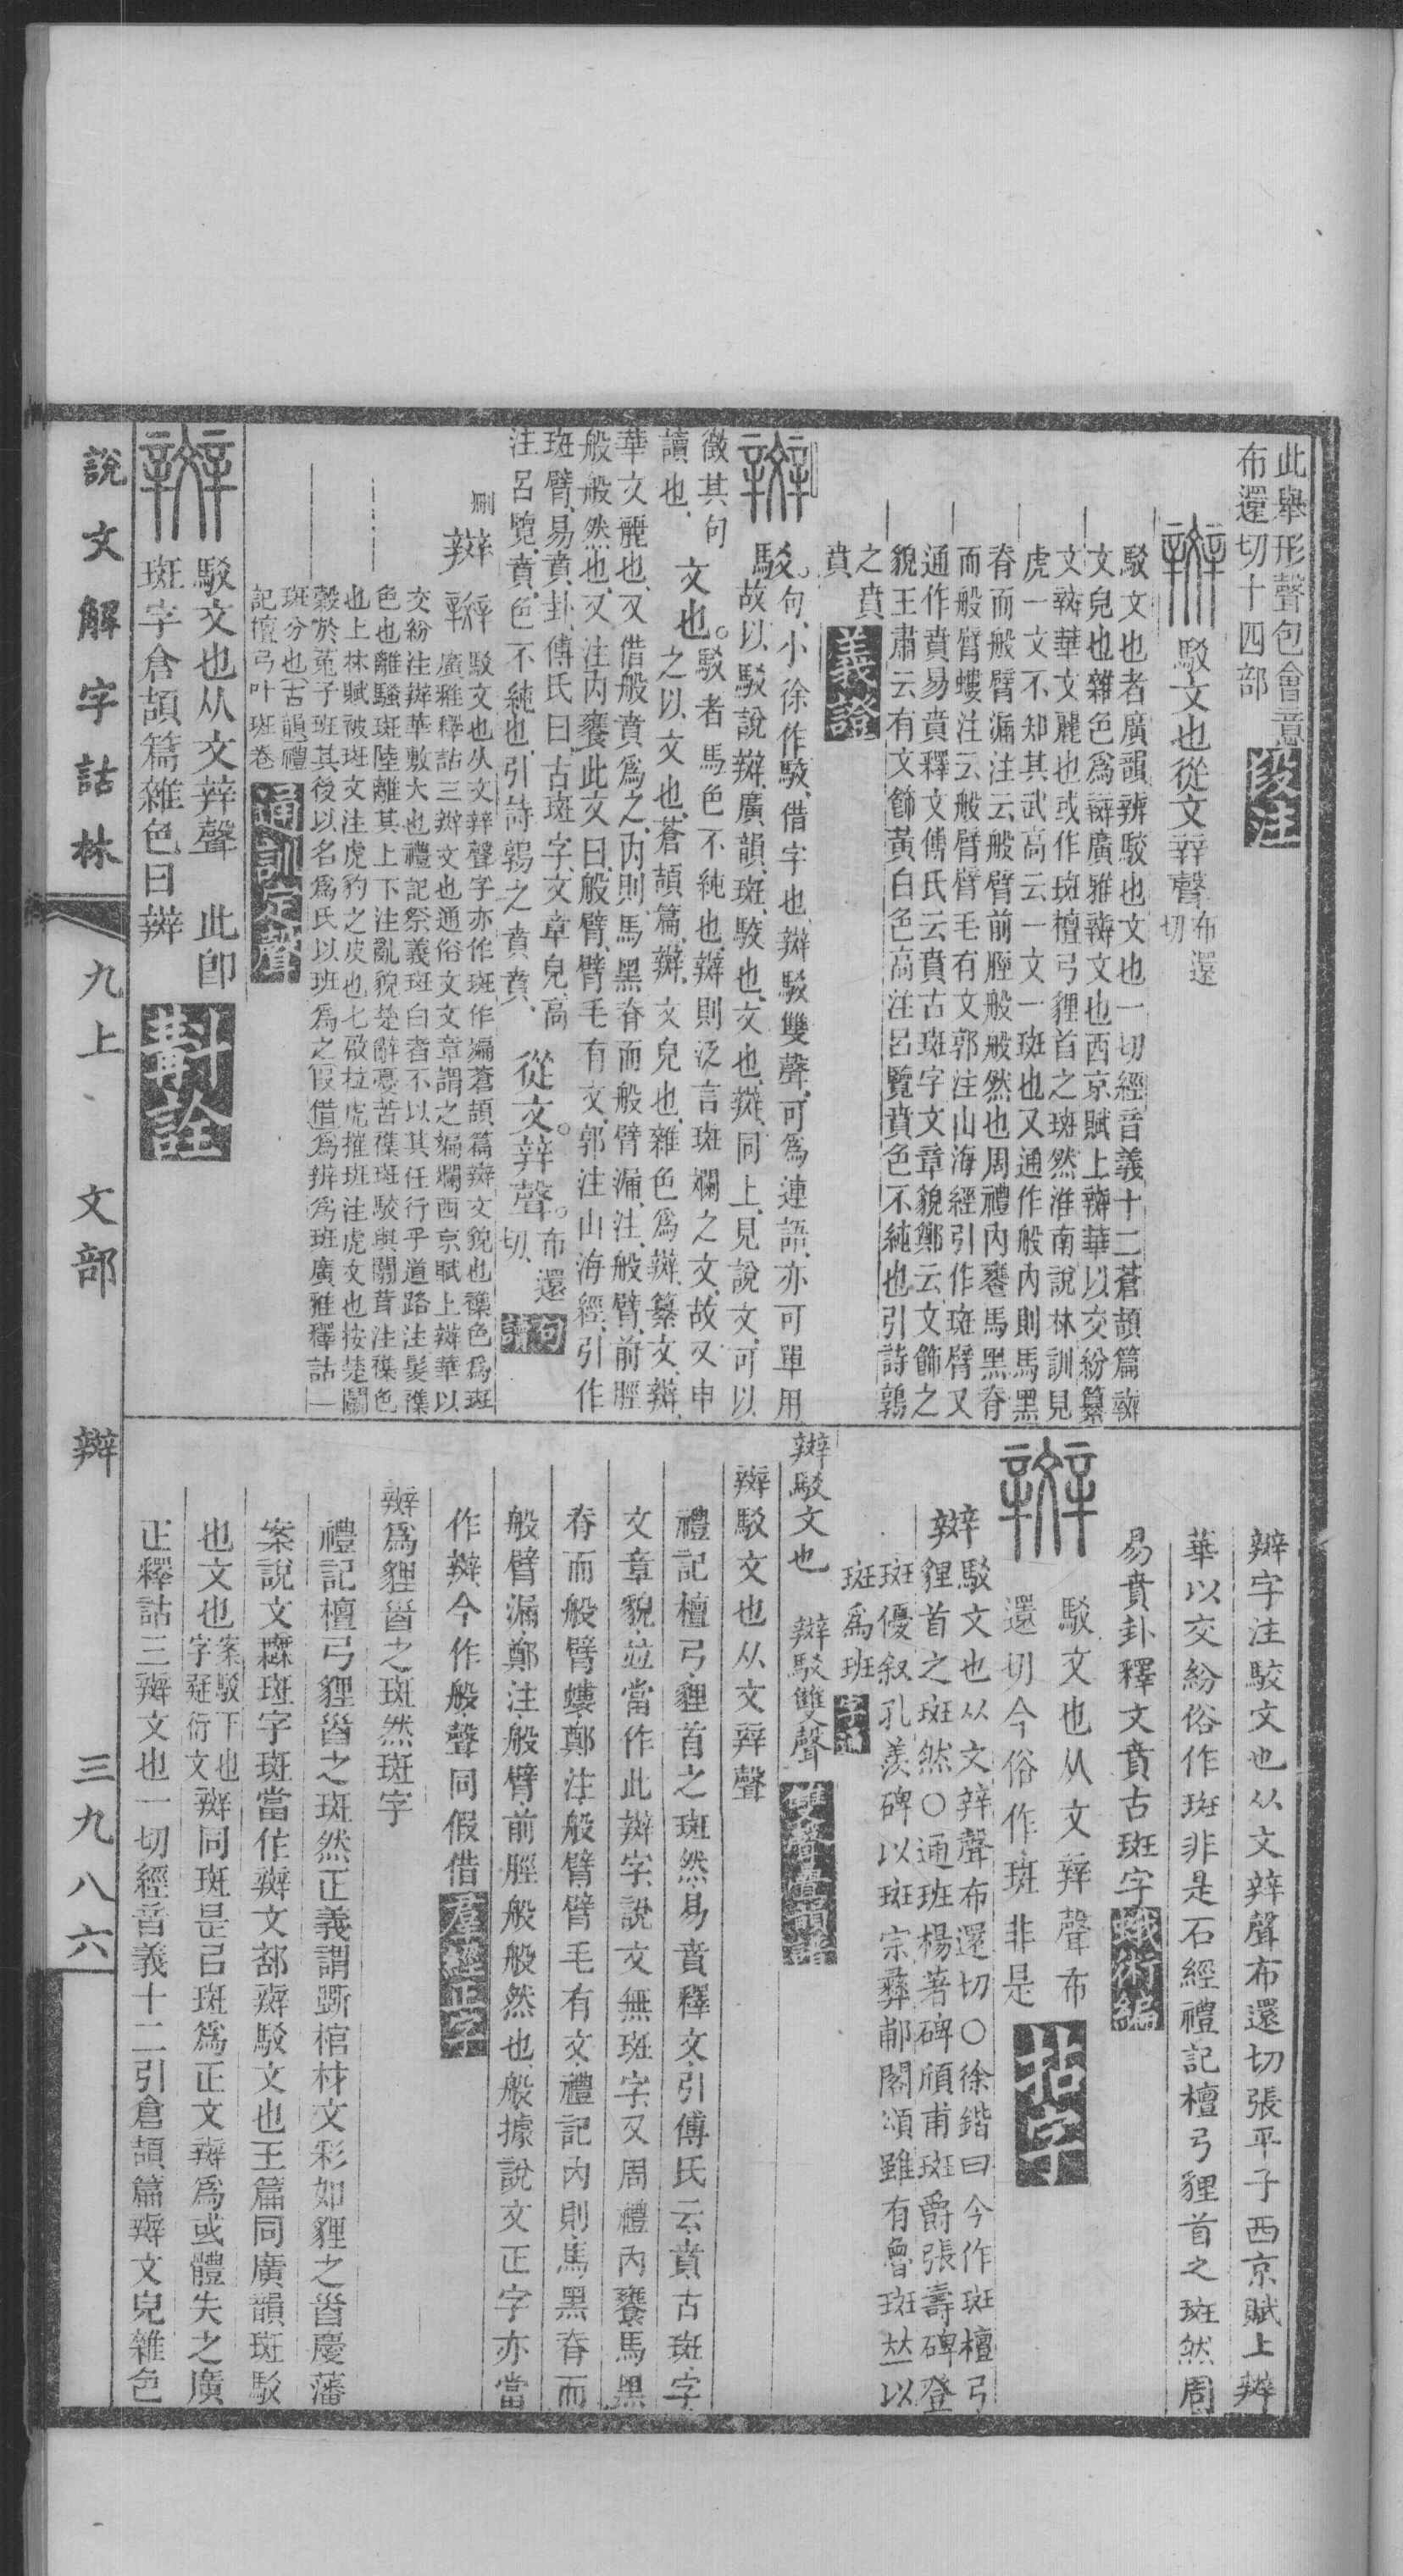 此舉形聲包會意
布還切十四部
段注
駁文也從文辡聲布還
切
駁文也者廣韻辬駁也文也一切經音義十二蒼頡篇辬
文皃也雜色爲辬廣雅辬文也西京賦上辬華以交紛纂
文辬華文麗也或作斑檀弓貍首之斑然淮南說林訓見
虎一文不知其武高云一文一斑也又通作般內則馬黑
脊而般臂漏注云般臂前脛般般然也周禮內饔馬黑脊
而般臂螻注云般臂臂毛有文郭注山海經引作斑臂又
通作賁易賁釋文傅氏云賁古斑字文章貌鄭云文飾之
貌王肅云有文飾黃白色高注呂覽賁色不純也引詩鶉
之賁
賁
義證
駁。句、小徐作駮、借字也、辬駁雙聲、可爲連語、亦可單用
故以駁說辬、廣韻、斑、駮也、文也、辬、同上、見說文、可以
徵其句
讀也、
文也。駁者馬色不純也、辬則泛言斑斕之文、故又申
之以文也、蒼頡篇、辬、文皃也、雜色爲辬、纂文、辬、
華文麗也、又借般賁爲之、內則、馬黑脊而般臂漏、注、般臂、前脛
般般然也、又注內饔此文曰、般臂、臂毛有文、郭注山海經、引作
斑臂、易賁卦、傅氏曰、古斑字、文章皃、高
注呂覽、賁、色不純也、引詩鶉之賁賁、
從文。辡聲。布還
切、
句讀
刪
辬
駁文也从文辡聲字亦作斑作斒蒼頡篇辬文貌也襍色爲斑
廣雅釋詁三辬文也通俗文文章謂之斒斕西京賦上辬華以
交紛注辬華敷大也禮記祭義斑白者不以其任行乎道路注髮襍
色也離騷斑陸離其上下注亂貌楚辭憂苦襍斑駁與闒茸注襍色
也上林賦被斑文注虎豹之皮也七啟拉虎摧斑注虎文也按楚鬬
穀於菟子班其後以名爲氏以班爲之叚借爲辨爲班廣雅釋詁一
斑分也古韻禮
記檀弓叶斑卷
通訓定聲
駁文也从文辡聲　此卽
斑字倉頡篇雜色曰辬
斠詮
辬字注駮文也从文辡聲布還切張平子西京賦上辬
華以交紛俗作斑非是石經禮記檀弓貍首之斑然周
易賁卦釋文賁古斑字
蛾術編
駁文也从文辡聲布
還切今俗作斑非是
拈字
辬
駁文也从文辡聲布還切○徐鍇曰今作斑檀弓
貍首之斑然○通班楊著碑頎甫班爵張壽碑登
斑優叙孔羨碑以斑宗彝郙閣頌雖有魯斑𠀤以
斑爲班
字通
辬駁文也　辬駁雙聲
雙聲疊韻譜
辬駁文也从文辡聲
禮記檀弓、貍首之斑然、易賁釋文、引傅氏云、賁古斑字、
文章貌、竝當作此辬字、說文無斑字、又周禮內饔、馬黑
脊而般臂螻、鄭注、般臂、臂毛有文、禮記內則、馬黑脊而
般臂漏、鄭注、般臂、前脛般般然也、般據說文正字亦當
作辬、今作般、聲同假借
羣經正字
辬爲貍首之斑然斑字
禮記檀弓貍首之斑然正義謂斲棺材文彩如貍之首慶藩
案說文𣠽斑字斑當作辬文部辬駁文也玉篇同廣韻斑駁
也文也案駁下也
字疑衍文
辬同斑是㠯斑爲正文辬爲或體失之廣
正釋詁三辬文也一切經音義十二引倉頡篇辬文皃雜色
說文解字詁林
九上　文部　辬
三九八六